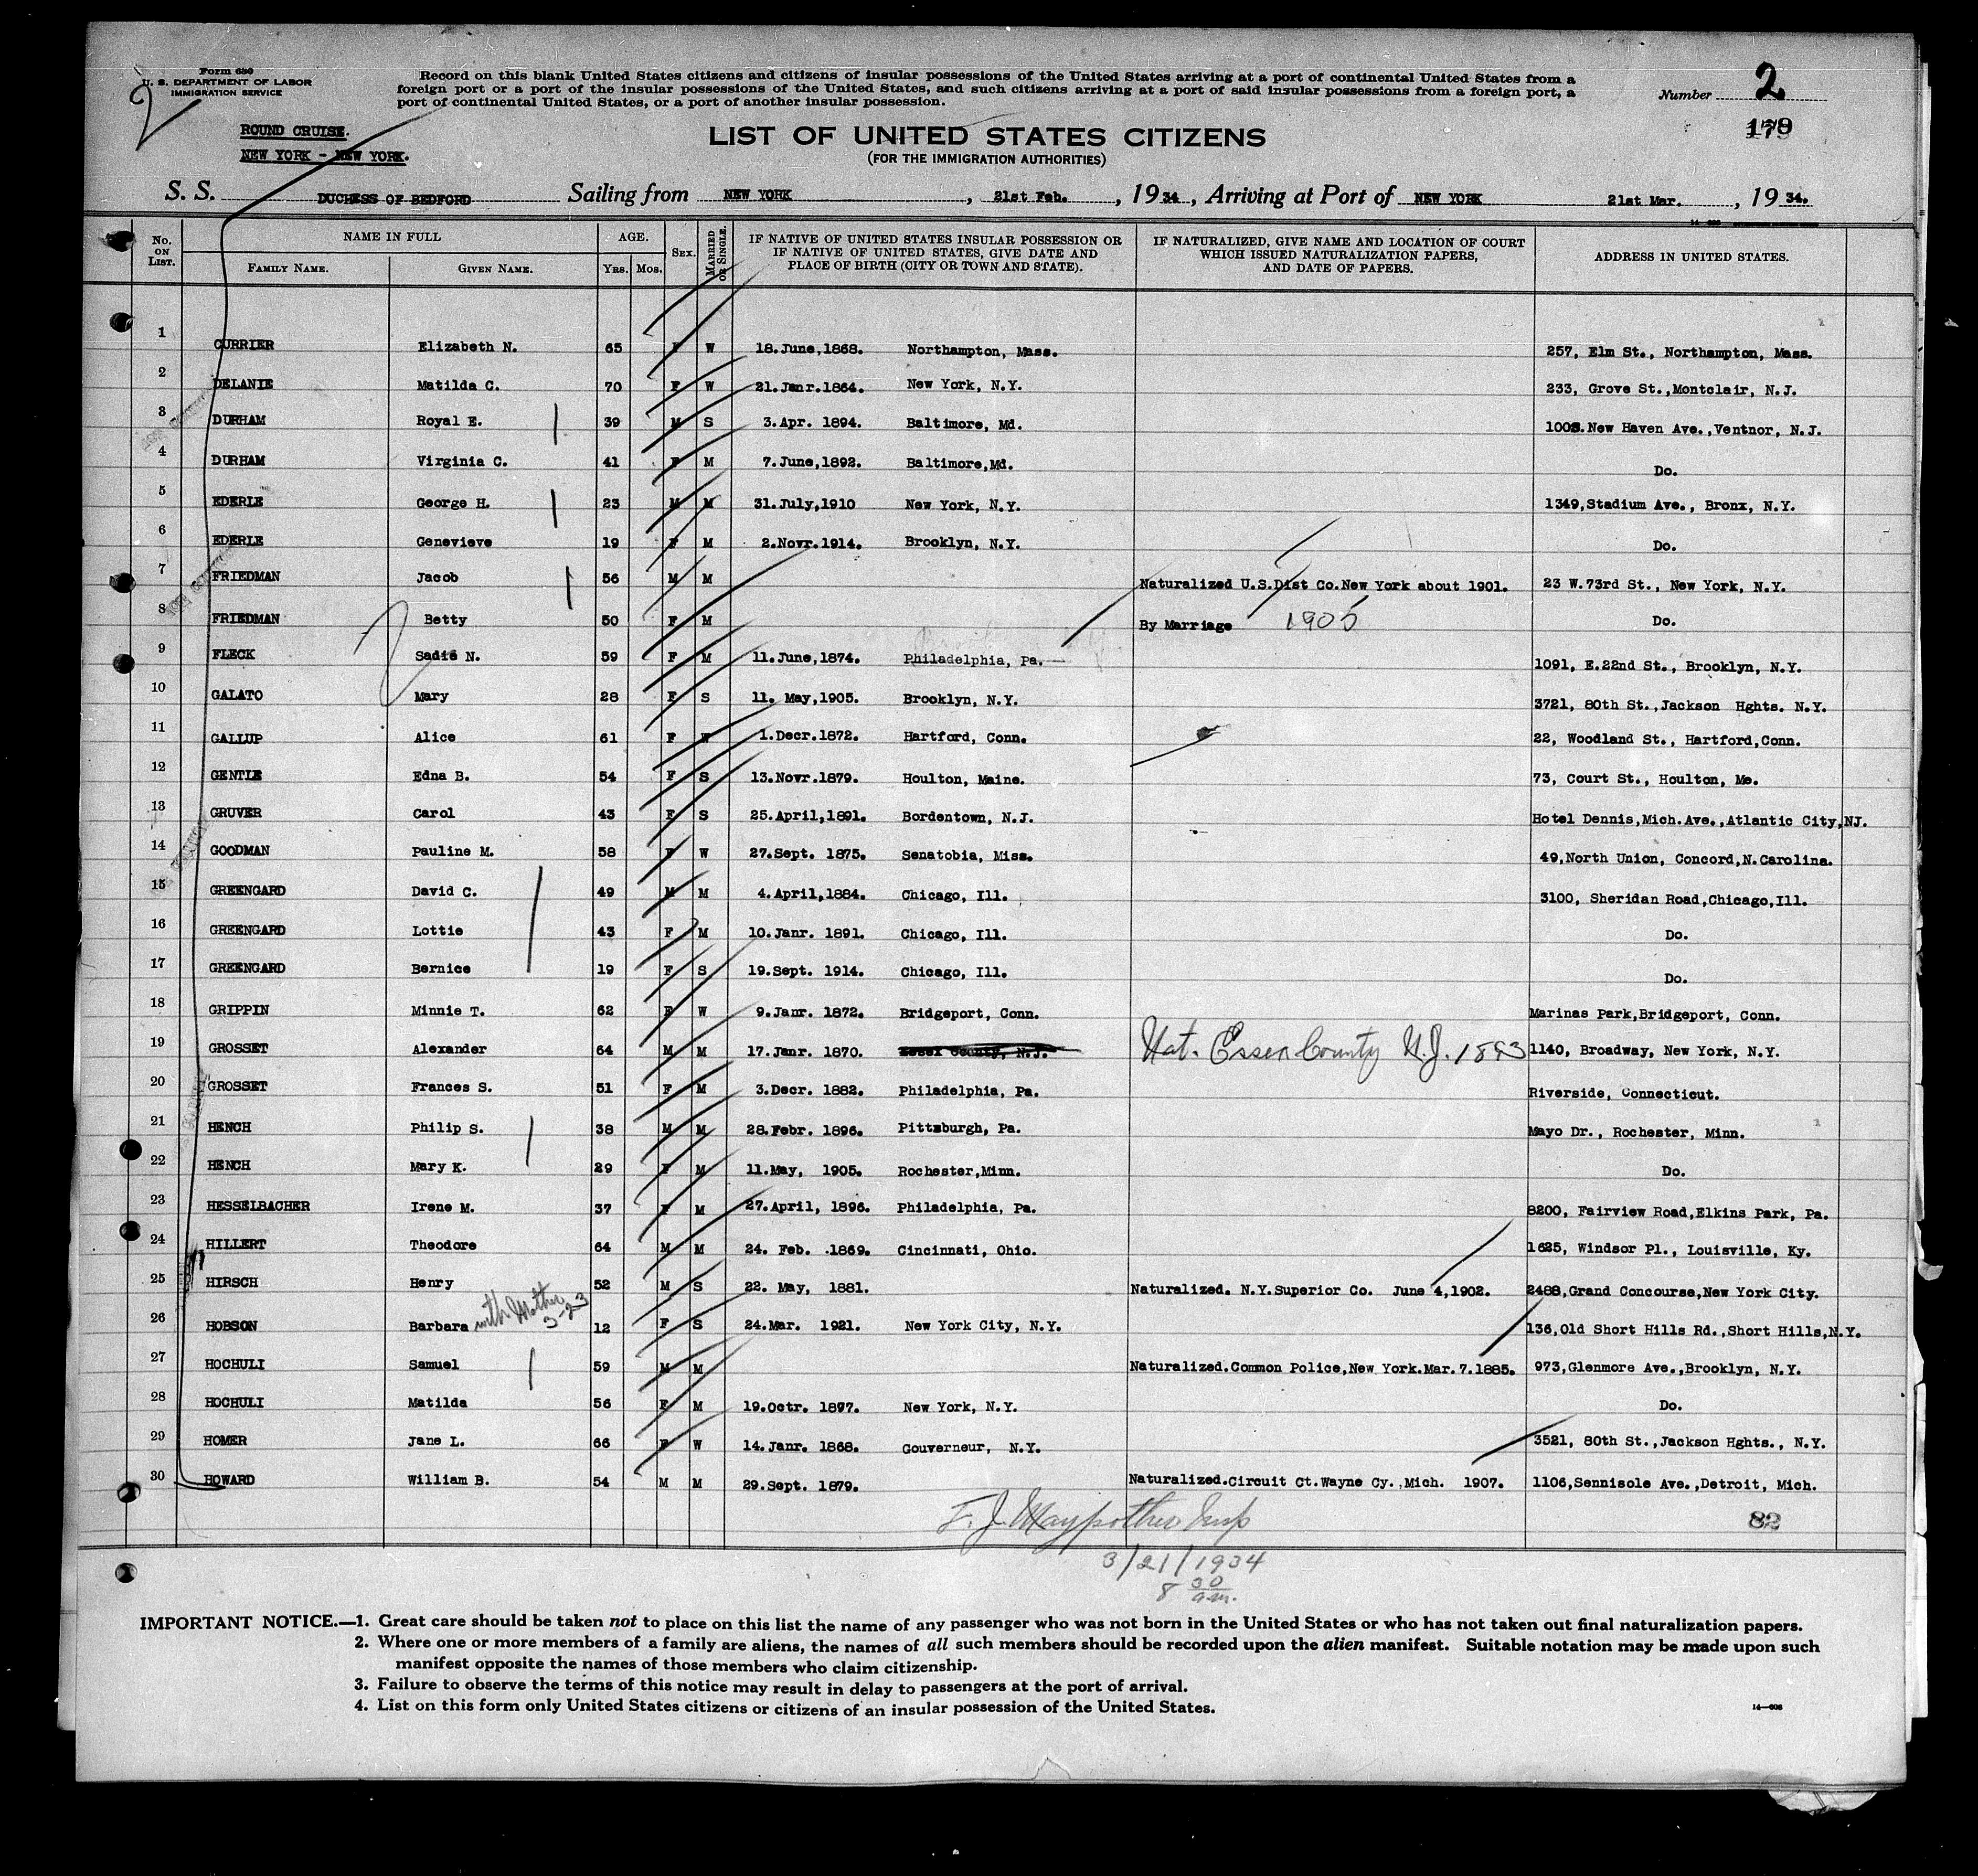 Form 630
U. S. DEPARTMENT OF LABOR
IMMIGRATION SERVICE
2
Record on this blank United States citizens and citizens of insular possessions of the United States arriving at a port of continental United States from a
foreign port or a port of the insular possessions of the United States, and such citizens arriving at a port of said insular possessions from a foreign port, a
port of continental United States, or a port of another insular possession.
Number 2
179
ROUND CRUISE.
NEW YORK - NEW YORK.
LIST OF UNITED STATES CITIZENS
(FOR THE IMMIGRATION AUTHORITIES)
S. S. DUCHESS OF BEDFORD Sailing from NEW YORK, 21st Feb., 1934, Arriving at Port of NEW YORK 21st Mar., 1934.
No. ON LIST. NAME IN FULL FAMILY NAME. GIVEN NAME. AGE. YRS. MOS. SEX. MARRIED OR SINGLE. IF NATIVE OF UNITED STATES INSULAR POSSESSION OR IF NATIVE OF UNITED STATES, GIVE DATE AND PLACE OF BIRTH (CITY OR TOWN AND STATE). IF NATURALIZED, GIVE NAME AND LOCATION OF COURT WHICH ISSUED NATURALIZATION PAPERS, AND DATE OF PAPERS. ADDRESS IN UNITED STATES.
1 CURRIER Elizabeth N. 65 F W 18.June,1868. Northampton, Mass. 257, Elm St., Northampton, Mass.
2 DELANIE Matilda C. 70 F W 21.Janr.1864. New York, N.Y. 233, Grove St.,Montclair, N.J.
3 DURHAM Royal E. 39 M S 3.Apr. 1894. Baltimore, Md. 100S.New Haven Ave.,Ventnor, N.J.
4 DURHAM Virginia C. 41 F M 7.June,1892. Baltimore,Md. Do.
5 EDERLE George H. 23 M M 31.July,1910 New York, N.Y. 1349,Stadium Ave., Bronx, N.Y.
6 EDERLE Genevieve 19 F M 2.Novr.1914. Brooklyn, N.Y. Do.
7 FRIEDMAN Jacob 56 M M Naturalized U.S.Dist Co.New York about 1901. 23 W.73rd St., New York, N.Y.
8 FRIEDMAN Betty 50 F M By Marriage 1905 Do.
9 FLECK Sadie N. 59 F M 11.June,1874. Philadelphia, Pa. 1091, E.22nd St., Brooklyn, N.Y.
10 GALATO Mary 28 F S 11. May,1905. Brooklyn, N.Y. 3721, 80th St.,Jackson Hghts. N.Y.
11 GALLUP Alice 61 F W 1.Decr.1872. Hartford, Conn. 22, Woodland St., Hartford,Conn.
12 GENTLE Edna B. 54 F S 13.Novr.1879. Houlton, Maine. 73, Court St., Houlton, Me.
13 GRUVER Carol 43 F S 25.April,1891. Bordentown, N.J. Hotel Dennis,Mich.Ave.,Atlantic City,NJ.
14 GOODMAN Pauline M. 58 F W 27.Sept. 1875. Senatobia, Miss. 49,North Union, Concord,N.Carolina.
15 GREENGARD David C. 49 M M 4.April,1884. Chicago, Ill. 3100, Sheridan Road,Chicago,Ill.
16 GREENGARD Lottie 43 F M 10.Janr. 1891. Chicago, Ill. Do.
17 GREENGARD Bernice 19 F S 19.Sept. 1914. Chicago, Ill. Do.
18 GRIPPIN Minnie T. 62 F W 9.Janr. 1872. Bridgeport, Conn. Marinas Park,Bridgeport, Conn.
19 GROSSET Alexander 64 M M 17.Janr. 1870. Essex County, N.J. Nat. Essex County N.J. 1893 1140, Broadway, New York, N.Y.
20 GROSSET Frances S. 51 F M 3.Decr. 1882. Philadelphia, Pa. Riverside, Connecticut.
21 HENCH Philip S. 38 M M 28.Febr. 1896. Pittsburgh, Pa. Mayo Dr., Rochester, Minn.
22 HENCH Mary K. 29 F M 11.May, 1905. Rochester,Minn. Do.
23 HESSELBACHER Irene M. 37 F M 27.April, 1896. Philadelphia, Pa. 8200, Fairview Road,Elkins Park, Pa.
24 HILLERT Theodore 64 M M 24. Feb. 1869. Cincinnati, Ohio. 1625, Windsor Pl., Louisville, Ky.
25 HIRSCH Henry 52 M S 22. May, 1881. Naturalized. N.Y.Superior Co. June 4,1902. 2488,Grand Concourse,New York City.
26 HOBSON Barbara with Mother 3-23 12 F S 24.Mar. 1921. New York City, N.Y. 136,Old Short Hills Rd.,Short Hills,N.Y.
27 HOCHULI Samuel 59 M M Naturalized.Common Police,New York.Mar.7.1885. 973,Glenmore Ave.,Brooklyn, N.Y.
28 HOCHULI Matilda 56 F M 19.Octr. 1897. New York, N.Y. Do.
29 HOMER Jane L. 66 F W 14.Janr. 1868. Gouverneur, N.Y. 3521, 80th St.,Jackson Hghts., N.Y.
30 HOWARD William B. 54 M M 29.Sept. 1879. Naturalized.Circuit Ct.Wayne Cy.,Mich. 1907. 1106,Sennisole Ave.,Detroit, Mich.
82
3/21/1934
8 30 a.m.
IMPORTANT NOTICE.—1. Great care should be taken not to place on this list the name of any passenger who was not born in the United States or who has not taken out final naturalization papers.
2. Where one or more members of a family are aliens, the names of all such members should be recorded upon the alien manifest. Suitable notation may be made upon such
manifest opposite the names of those members who claim citizenship.
3. Failure to observe the terms of this notice may result in delay to passengers at the port of arrival.
4. List on this form only United States citizens or citizens of an insular possession of the United States.
14—608